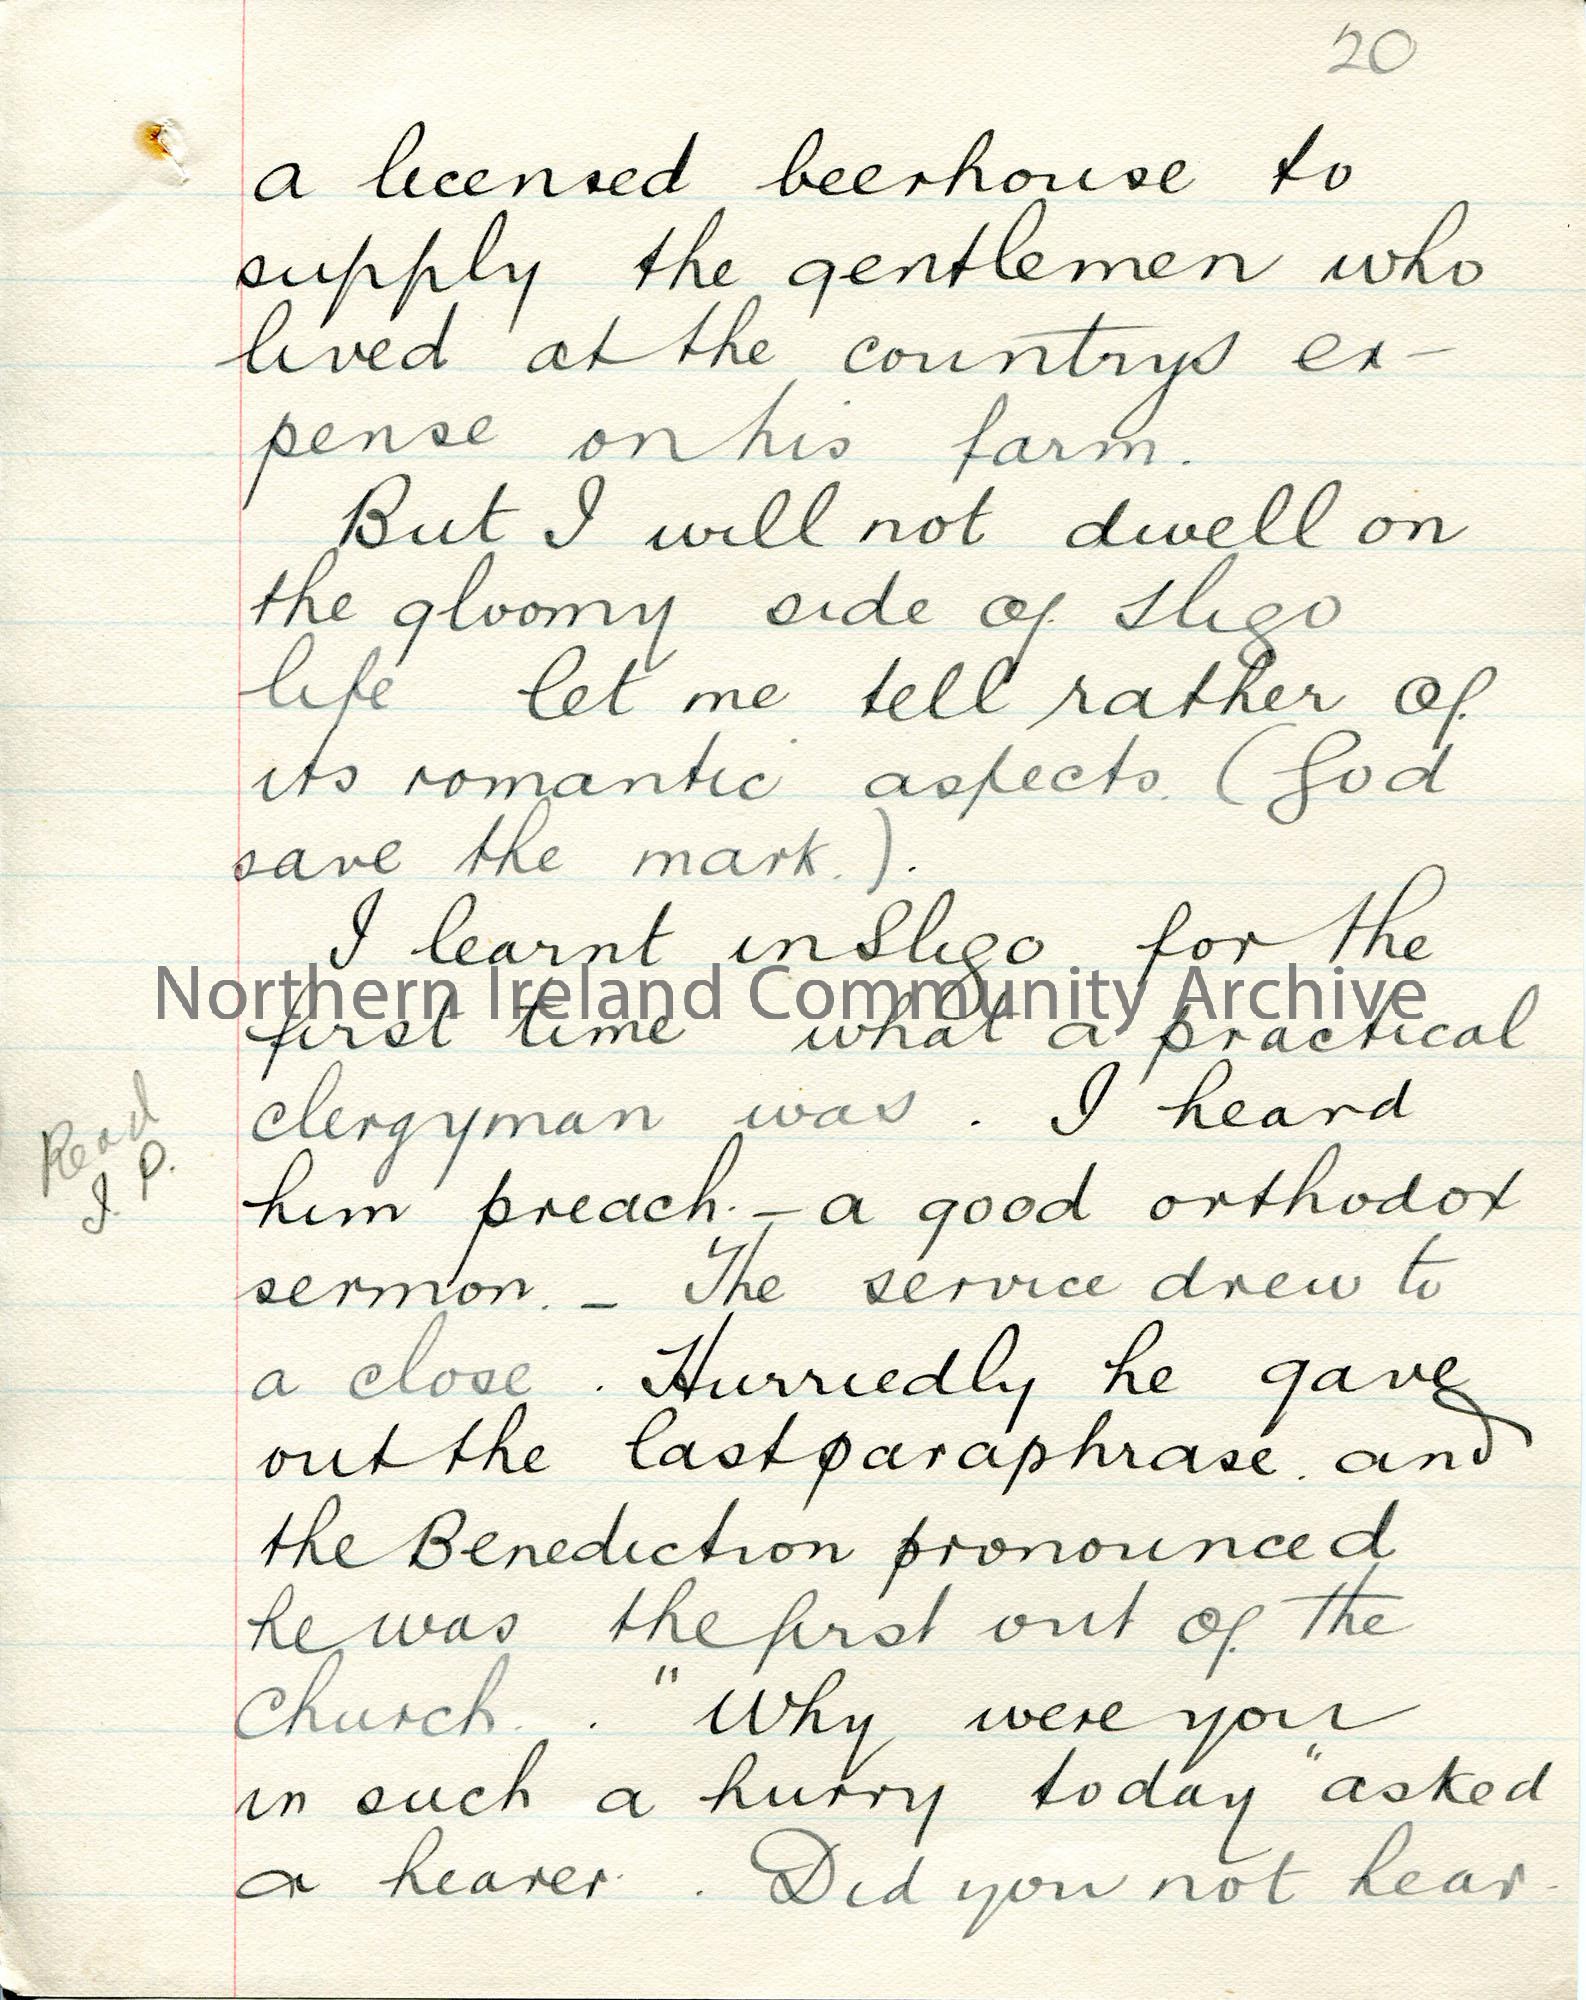 20
a licensed beerhouse to
supply the gentlemen who
lived at the countrys ex-
pense on his farm.
But I will not dwell on
the gloomy side of Sligo
life let me tell rather of
its romantic aspects. (God
save the mark.).
I learnt in Sligo for the
Northern Ireland Community Archive
first time what a practical
clergyman was. I heard
Read
J. P.
him preach. - a good orthodox
sermon. - The service drew to
a close. Hurriedly he gave
out the last paraphrase. and
the Benediction pronounced
he was the first out of the
Church. . "Why were you
in such a hurry today" asked
a hearer. . Did you not hear